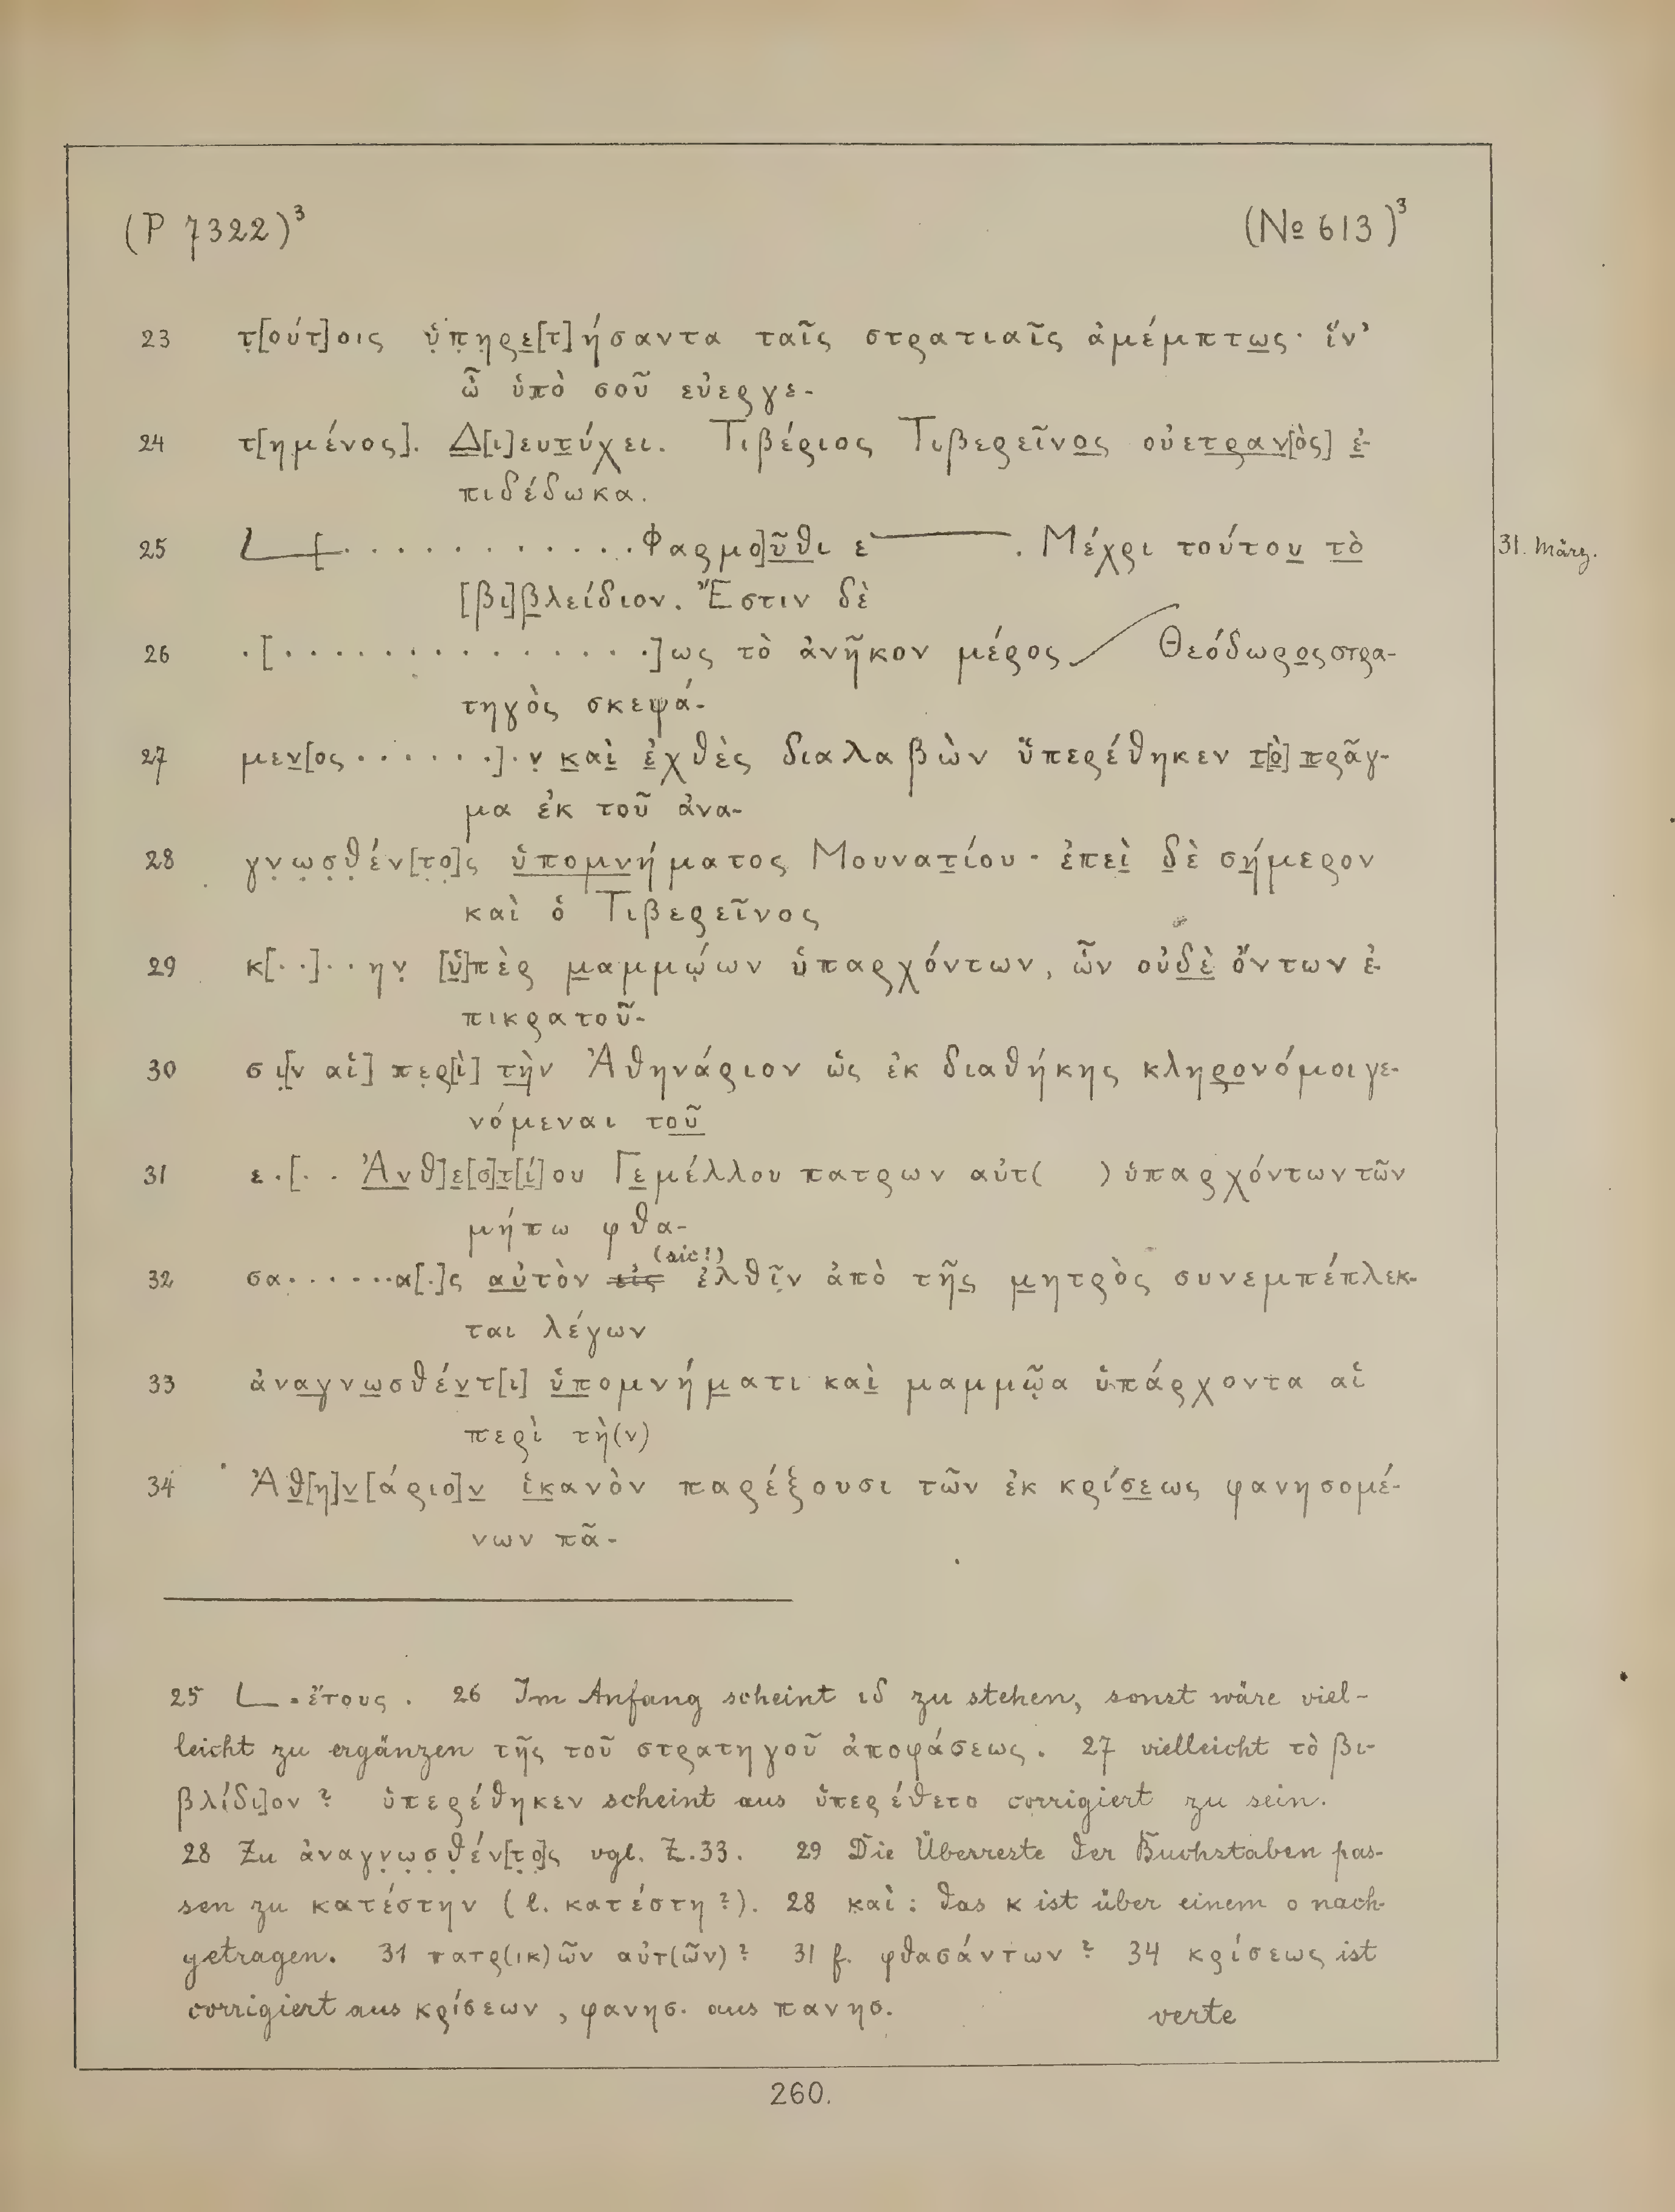 (P 7322)³ (№ 613)³
23 τ̣[ούτ]οις ὑ̣π̣η̣ρ̣ε̣[τ]ήσαντα ταῖς στρατιαῖς ἀμέμπτω̣ς· ἵν'
ὦ ὑπὸ σοῦ εὐεργε-
24 τ[ημένος]. Δ̣[ι]ευτ̣ύχει. Τιβέριος Τιβερεῖνο̣ς οὐετ̣ρ̣α̣ν̣[ὸς] ἐ̣-
πιδέδωκα.
25 L [. . . . . . . . . . . . Φαρμο]ῦ̣θ̣ι ε . Μέχρι τούτου̣ τ̣ὸ̣
[βι]β̣λείδιον. Ἔστιν δὲ
31. März.
26 .[. . . . . . . . . . . . . . .]ως τὸ ἀνῆκον μέρος / Θεόδωρο̣ς στρα-
τηγὸς σκεψά-
27 μεν̣[ος . . . . . . .].ν̣ κ̣αὶ̣ ἐ̣χθὲς διαλαβὼν ὕπερέθηκεν τ̣[ὸ̣] π̣ρᾶγ-
μα ἐκ τοῦ ἀνα-
28 γν̣ω̣σ̣θ̣έν[τ̣ο̣]ς ὑ̣π̣ο̣μ̣ν̣ήματος Μουνατ̣ίου· ἐπεὶ̣ δ̣ὲ σή̣μερον
καὶ ὁ Τιβερεῖνος
29 κ[. .]. . ην̣ [ὑ̣]πὲρ μ̣αμμῴ̣ων ὑπαρχόντων, ὧν οὐδ̣ὲ̣ ὄντων ἐ-
πικρατοῦ-
30 σι̣[ν αἱ] πε̣ρ̣[ὶ] τ̣ὴ̣ν Ἀθηνάριον ὡς ἐκ διαθήκης κληρ̣ο̣νόμοι γε-
νόμεναι το̣ῦ̣
31 ε.[. . Ἀ̣ν̣θ]ε̣[σ]τ̣[ί̣]ου Γε̣μέλλου πατρων αὐτ( ) ὑπαρχόντων τῶν
μήπω φθα-
(sic!)
32 σα. . . . . . .α[.]ς α̣ὐ̣τὸν εἰς ἐλθῖ̣ν ἀπὸ τῆ̣ς μ̣ητρὸς συνεμπέπλεκ-
ται λέγων
33 ἀνα̣γνω̣σθέν̣τ[ι] ὑ̣π̣ομνήμ̣ατι καὶ̣ μαμμῷα ὑπάρχοντα αἱ
περὶ τὴ(ν)
34 Ἀθ̣[η]ν̣[άριο]ν̣ ἱ̣κ̣ανὸν παρέξουσι τῶν ἐκ κρίσ̣ε̣ως φανησομέ-
νων πᾶ-
25 L = ἔτους. 26 Im Anfang scheint ιδ zu stehen, sonst wäre viel-
leicht zu ergänzen τῆς τοῦ στρατηγοῦ ἀποφάσεως. 27 vielleicht τὸ βι-
βλίδι]ον? ὑπερέθηκεν scheint aus ὑπερέθετο corrigiert zu sein.
28 Zu ἀναγν̣ω̣σ̣θ̣έν[τ̣ο̣]ς vgl. Z. 33. 29 Die Überreste der Buchstaben pas-
sen zu κατέστην (l. κατέστη?). 28 καὶ: das κ ist über einem ο nach-
getragen. 31 πατρ(ικ)ῶν αὐτ(ῶν)? 31 f. φθασάντων? 34 κρίσεως ist
corrigiert aus κρίσεων, φανησ. aus πανησ. verte
260.